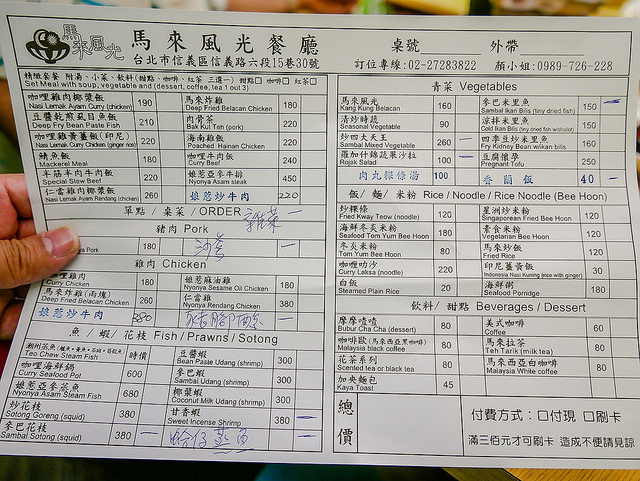 馬來風光
馬來風光餐廳
台北市信義區信義路六段15巷30號
桌號 外帶
訂位專線:02-27283822 顏小姐:0989-726-228
精緻套餐 附湯、小菜、飲料(甜點、咖啡、紅茶 三選一) 甜點□ 咖啡□ 紅茶□
Set Meal with soup, vegetable and (dessert, coffee, tea 1 out 3)
咖哩雞肉椰漿飯 190 馬來炸雞 180
Nasi Lemak Ayam Curry (chicken) Deep Fried Belacan Chicken
豆醬乾煎虱目魚飯 210 肉骨茶 220
Deep Fry Bean Paste Fish Bak Kut Teh (pork)
咖哩雞黃薑飯(印尼) 220 海南雞飯 220
Nasi Lemak Curry Chicken (ginger rice) Poached Hainan Chicken
鯖魚飯 180 咖哩牛肉飯 240
Mackerel Meal Curry Beef
半筋半肉牛肉飯 220 娘惹亞參牛排 450
Special Stew Beef Nyonya Asam steak
仁當雞肉椰漿飯 260 娘惹炒牛肉 220
Nasi Lemak Ayam Rendang (chicken)
單點 / 桌菜 / ORDER
豬肉 Pork
180
Pork
雞肉 Chicken
咖哩雞肉 180 娘惹麻油雞 180
Curry Chicken Nyonya Sesame Oil Chicken
馬來炸雞(兩塊) 260 仁當雞 380
Deep Fried Belacan Chicken Nyonya Rendang Chicken
娘惹炒牛肉 380
魚 / 蝦 / 花枝 Fish / Prawns / Sotong
時價 豆醬蝦 300
Teo Chew Steam Fish Bean Paste Udang (shrimp)
咖哩海鮮鍋 600 參巴蝦 300
Curry Seafood Pot Sambal Udang (shrimp)
娘惹亞參蒸魚 680 椰漿蝦 300
Nyonya Asam Steam Fish Coconut Milk Udang (shrimp)
炒花枝 380 甘香蝦 380
Sotong Goreng (squid) Sweet Incense Shrimp
參巴花枝 380 蛤仔蒸魚
Sambal Sotong (squid)
青菜 Vegetables
馬來風光 160 參巴米里魚 150
Kang Kung Belacan Sambal Ikan Bilis (tiny dried fish)
清炒時蔬 90 涼拌米里魚 150
Seasonal Vegetable Cold Ikan Bilis (tiny dried fish w/shallot)
炒四大天王 260 四季豆炒米里魚 160
Sambal Mixed Vegetable Fry Kidney Bean w/ikan bilis
羅加什錦蔬果沙拉 100 豆腐懷孕 250
Rojak Salad Pregnant Tofu
肉丸粿條湯 100 香蘭飯 40
飯/ 麵/ 米粉 Rice / Noodle / Rice Noodle (Bee Hoon)
炒粿條 120 星洲炒米粉 120
Fried Kway Teow (noodle) Singaporean Fried Bee Hoon
海鮮冬炎米粉 180 素食米粉 120
Seafood Tom Yum Bee Hoon Vegetarian Bee Hoon
冬炎米粉 80 馬來炒飯 120
Tom Yum Bee Hoon Fried Rice
咖哩叻沙 220 印尼薑黃飯 30
Curry Laksa (noodle) Indonesia Nasi Kuning (rice with ginger)
白飯 20 海鮮粥 180
Steamed Plain Rice Seafood Porridge
飲料/ 甜點 Beverages / Dessert
摩摩喳喳 80 美式咖啡 60
Bubur Cha Cha (dessert) Coffee
咖啡歐(馬來西亞黑咖啡) 80 馬來拉茶 80
Malaysia black coffee Teh Tarik (milk tea)
花茶系列 80 馬來西亞白咖啡 80
Scented tea or black tea Malaysia White coffee
加央麵包 45
Kaya Toast
總價
付費方式:□付現 □刷卡
滿三佰元才可刷卡 造成不便請見諒